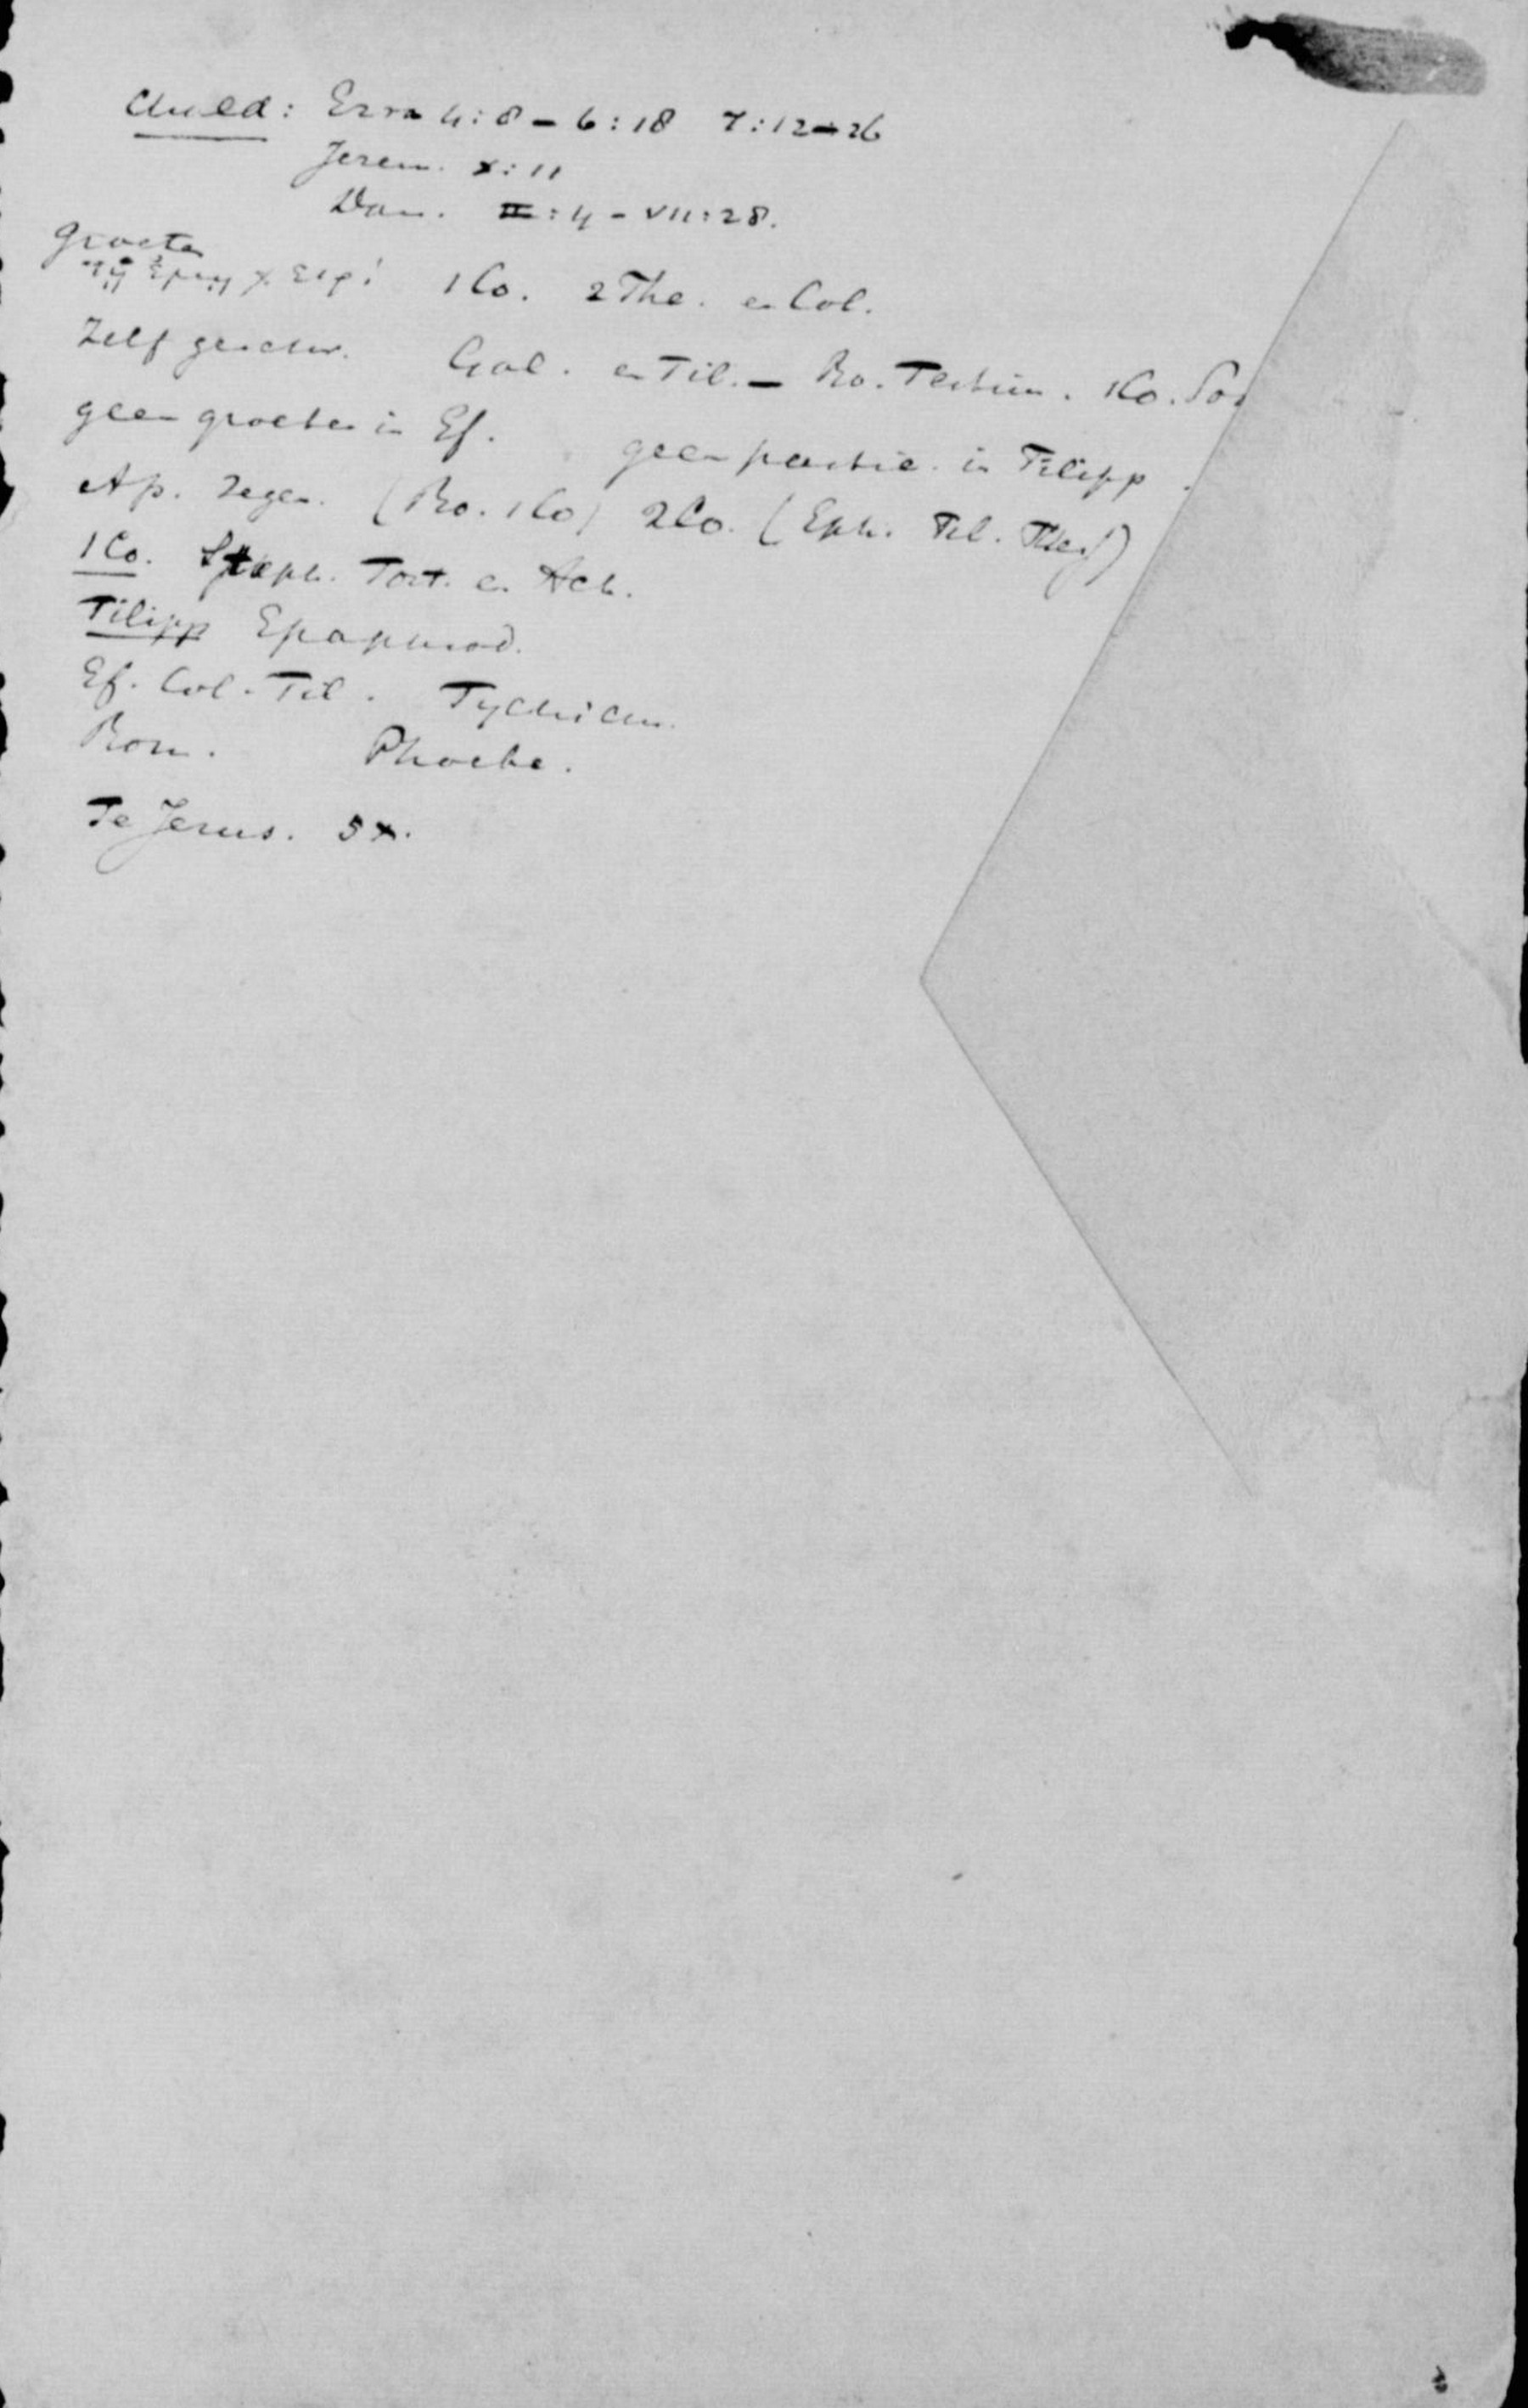 Chald: Ezra 4:8 – 6:18 7:12–26
Jerem. X:11
Dan. II:4 – VII:28.
groeten
τῇ ἐμῇ χειρί 1 Co. 2 The. en Col.
Zelf geschr. Gal. en Fil. – Ro. Tertius. 1 Co. Sos
geen groeten in Ef. geen partic. in Filipp.
Ap. zegen. (Ro. 1 Co) 2 Co. (Eph. Fil. Thes)
1 Co. Steph. Fort. en Ach.
Filipp Epaphrod.
Ef. Col. Fil. Tychicus.
Rom. Phoebe.
Te Jerus. 5x.